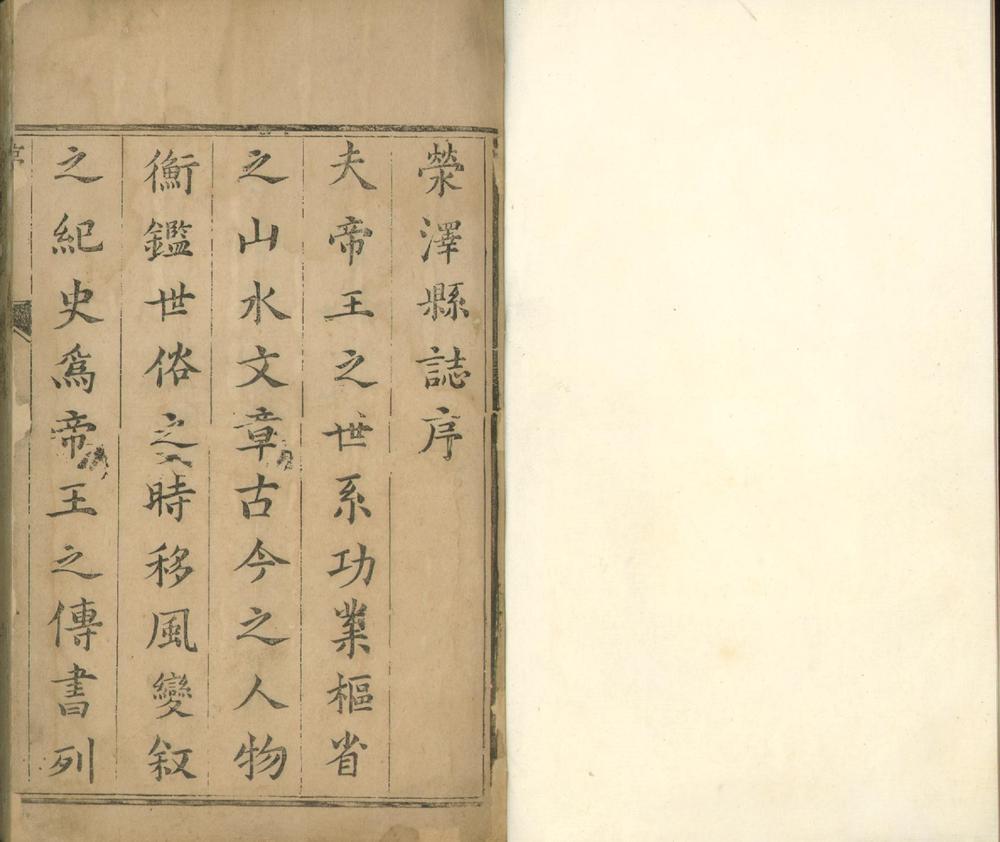 滎澤縣誌序
夫帝王之世系功業樞省
之山水文章古今之人物
衡鑑世俗之時移風變敘
之紀史爲帝王之傳書列